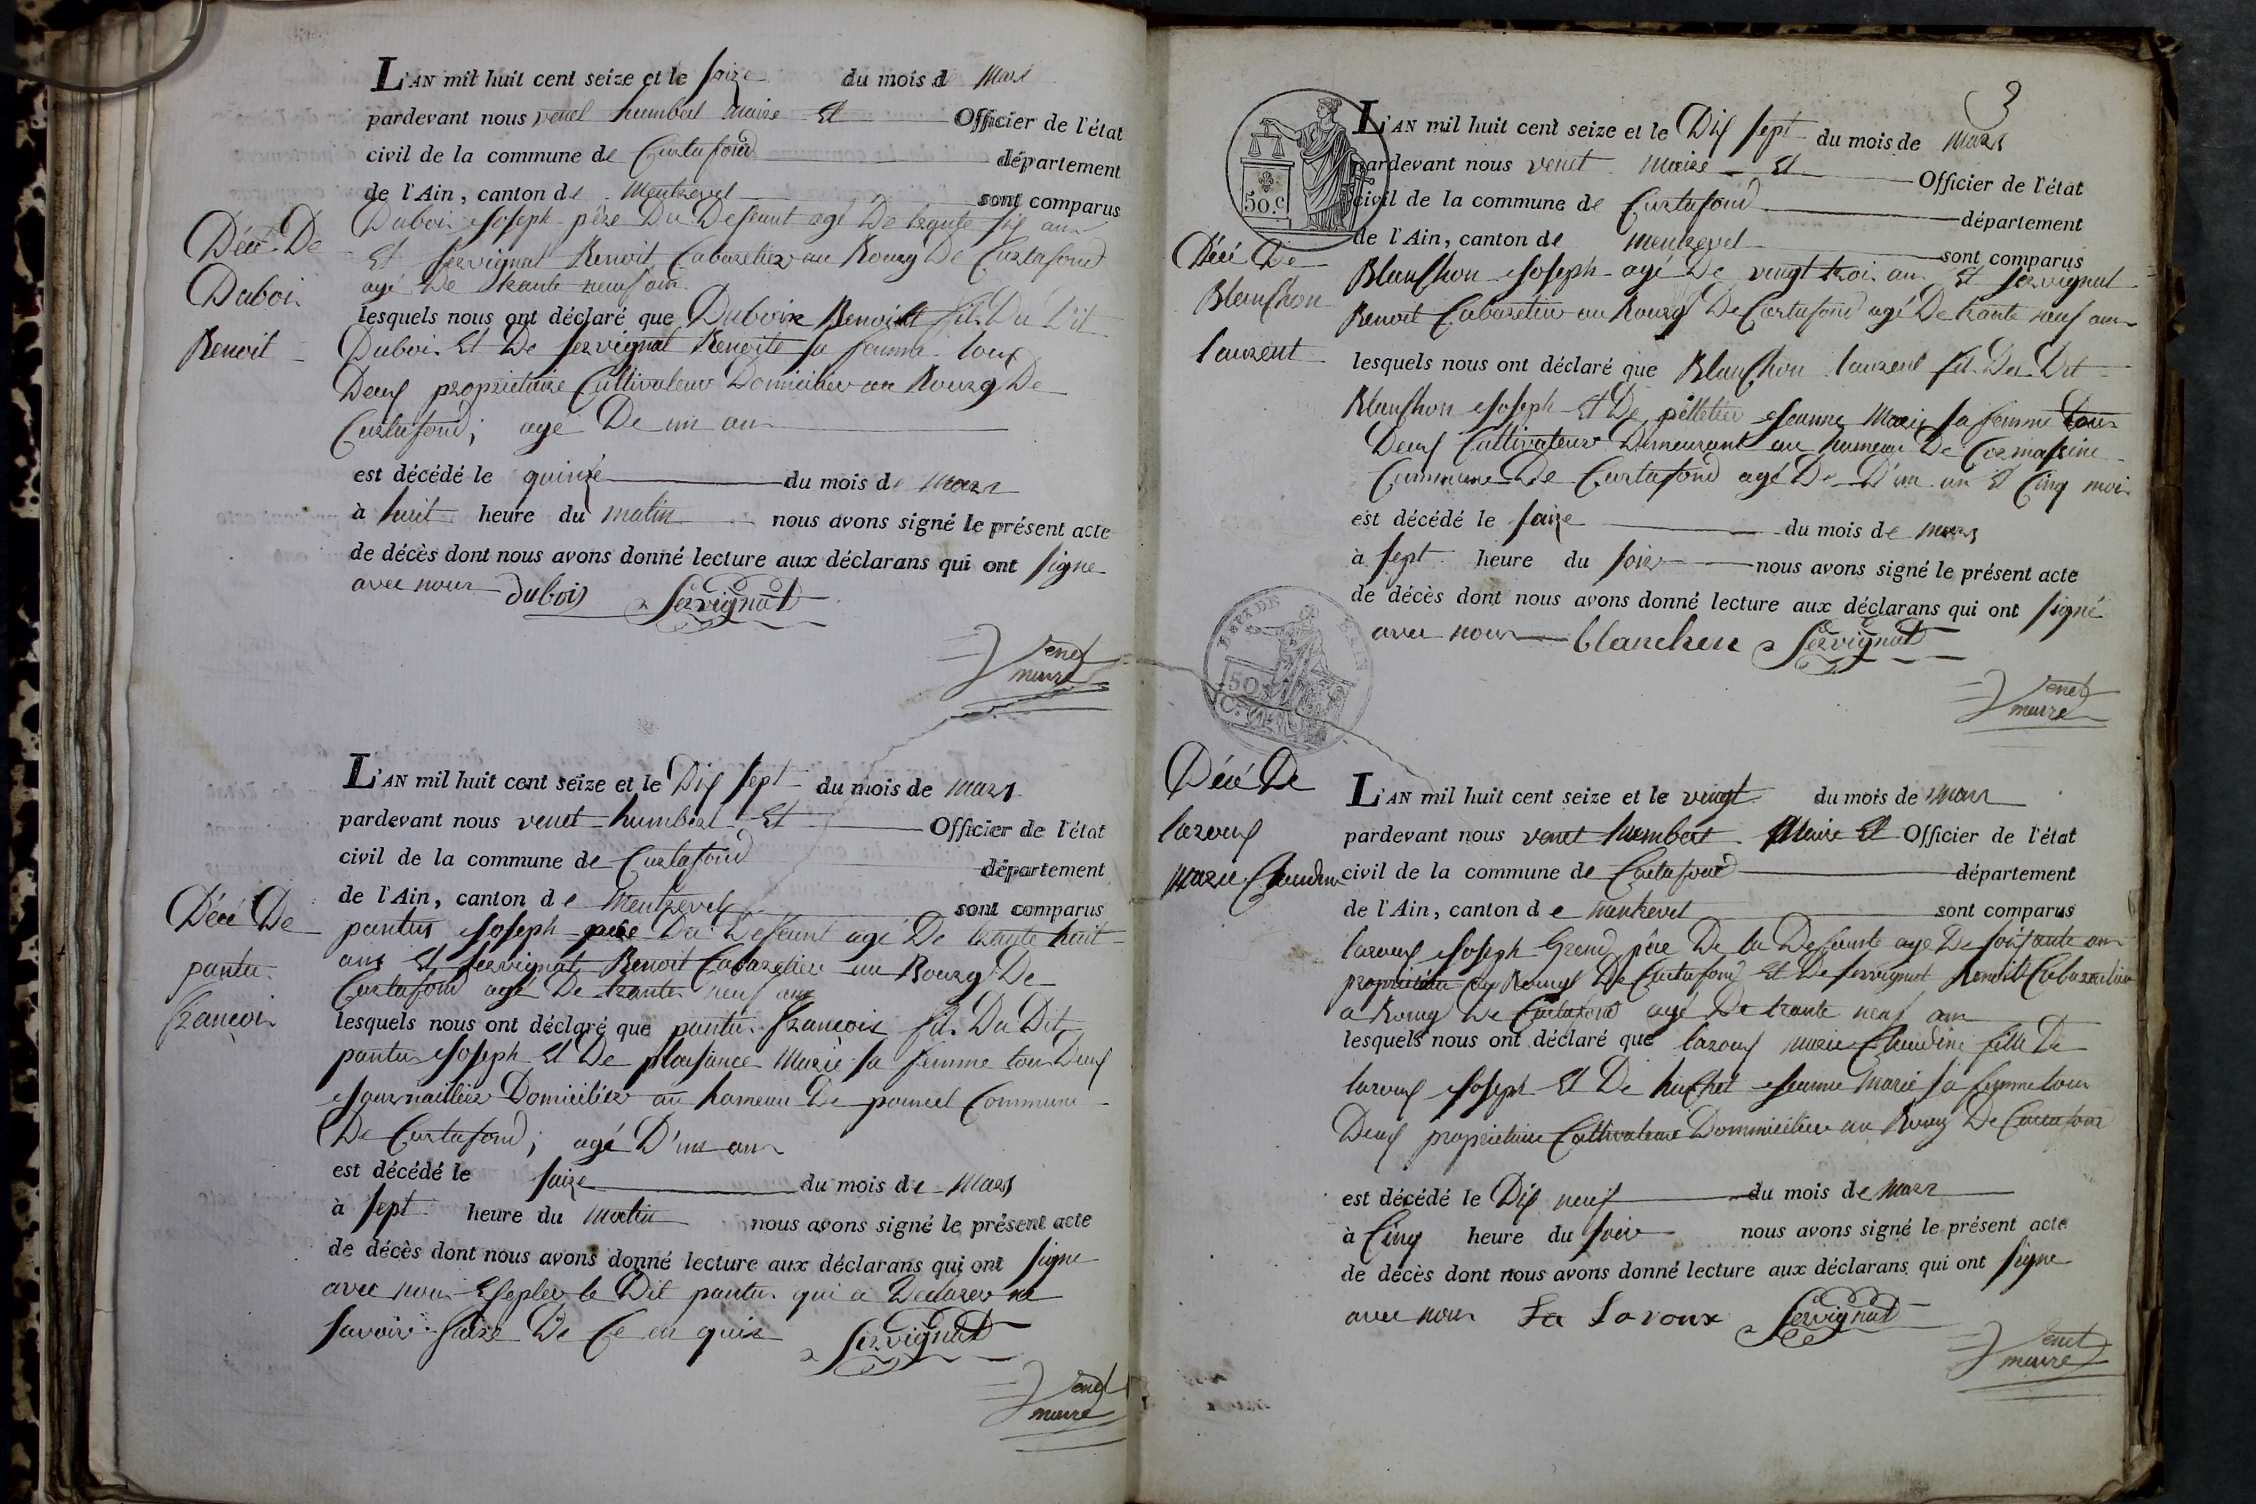 L'AN mil huit cent seize et le saize du mois d mars
pardevant nous venet humbert maire Et Officier de l'état
civil de la commune de Curtafond département
de l'Ain, canton de Montrevel sont comparus
Décé De
Duboi
Renoit
Duboi Joseph père Du Defeunt agé De trante six ans
Et Servignat Benoit Cabaretier au Bourg De Curtafond
agé De trante neuf ans
lesquels nous ont déclaré que Duboix Benoit fil Du Dit
Duboi Et De Servignat Benoite sa femme tous
Deux proprietaire Cultivateur Domicilier au Bourg De
Curtafond, agé De un an
est décédé le quinze du mois de mars
à huit heure du matin nous avons signé le présent acte
de décès dont nous avons donné lecture aux déclarans qui ont signe
avec nous dubois Servignat
Venet
maire
L'AN mil huit cent seize et le Dix sept du mois de mars
pardevant nous venet humbert Et Officier de l'état
civil de la commune de Curtafond département
de l'Ain, canton de Montrevel sont comparus
Décé De
pantu
françoi
pantus Joseph père Du Defeunt agé De trante huit
ans Et Servignat Benoit Cabaretier au Bourg De
Curtafond agé De trante neuf ans
lesquels nous ont déclaré que pantu françois fil Du Dit
pantu Joseph Et De plaisance Marie sa femme tou Deux
Journaillier Domicilier au hameau De Commune
De Curtafond; agé D'un an
est décédé le saize du mois de mars
à sept heure du matin nous avons signé le présent acte
de décès dont nous avons donné lecture aux déclarans qui ont signe
avec nous Esepter le Dit pantu qui a Declarer ne
savoir faire De Ce en quis Servignat
Venet
maire
3
50.c
L'AN mil huit cent seize et le Dix sept du mois de mars
pardevant nous venet maire Et Officier de l'état
civil de la commune de Curtafond département
de l'Ain, canton de Montrevel sont comparus
Décé De
Blanchon
laurent
Blanchon Joseph agé De vingt troi ans Et Servignat
Benoit Cabaretier au Bourg De Curtafond agé De trante neuf ans
lesquels nous ont déclaré que Blanchon laurent fil Du Dit
Blanchon Joseph Et De pelletier Jeanne Marie sa femme tous
Deux Cultivateur Demeurant au hameau De
Commune De Curtafond agé De D'un an Et Cinq moi
est décédé le saize du mois de mars
à sept heure du soir nous avons signé le présent acte
de décès dont nous avons donné lecture aux déclarans qui ont signé
avec nous blanchon Servignat
Venet
maire
50
Décé De
laroux
Marie Claudine
L'AN mil huit cent seize et le vingt du mois de mars
pardevant nous venet humbert Maire Et Officier de l'état
civil de la commune de Curtafond département
de l'Ain, canton de montrevel sont comparus
laroux Joseph Grand père De la Defeunte agé De soixante an
proprietaire au Bourg De Curtafond Et De Servignat Benoit Cabaretier
a Bourg De Curtafond agé De trante neuf an
lesquels nous ont déclaré que laroux marie Claudine fille De
laroux Joseph Et De huchet Jeanne Marie sa femme tous
Deux proprietaire Cultivateur Dommicilier au Bourg De Curtafond
est décédé le Dix neuf du mois de mars
à Cinq heure du soir nous avons signé le présent acte
de décès dont nous avons donné lecture aux déclarans qui ont signe
avec nous La Laroux Servignat
Venet
maire